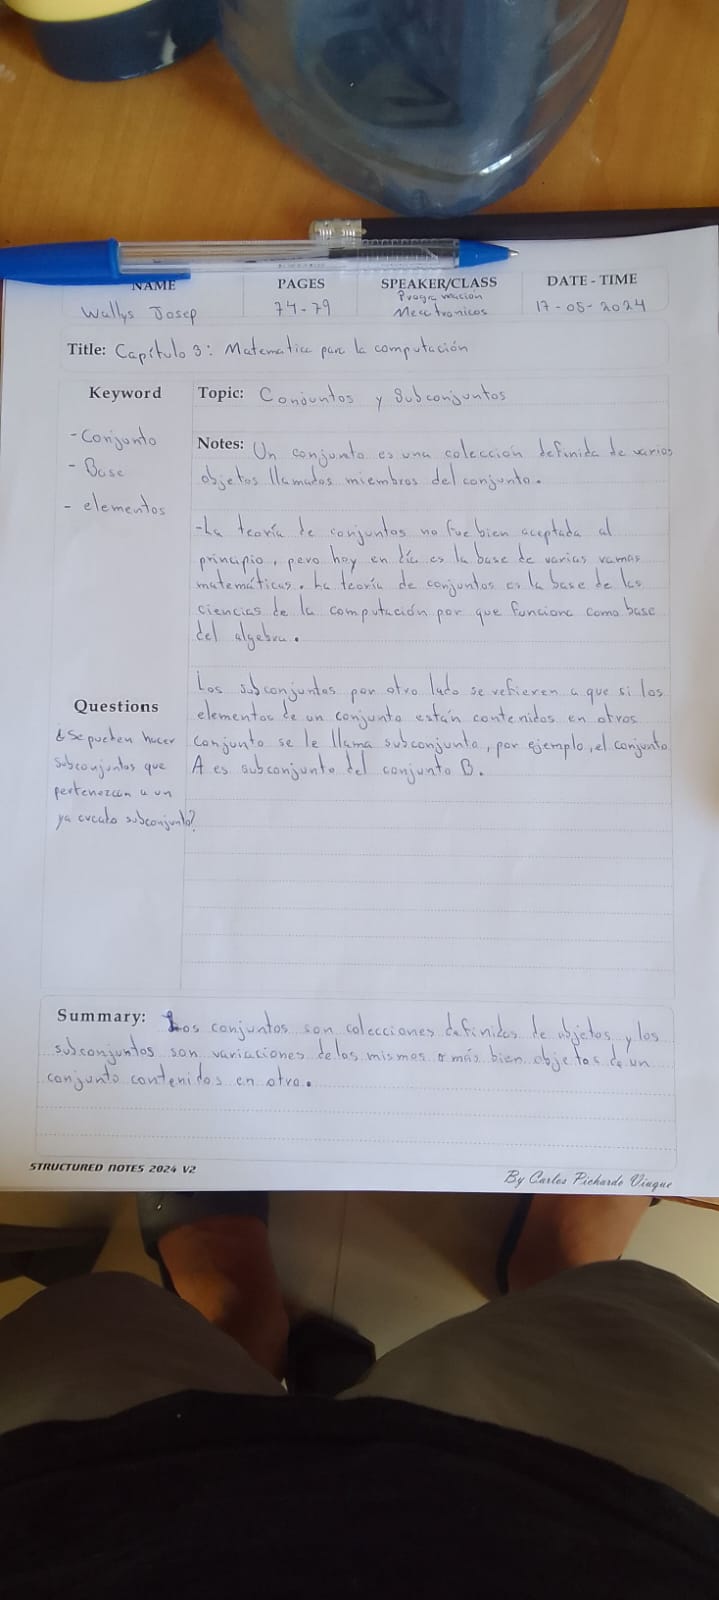 NAME PAGES SPEAKER/CLASS DATE - TIME
Wallys Josep 74-79 Programacion Mecatronicos 17-05-2024
Title: Capítulo 3: Matematica para la computación
Keyword
- Conjunto
- Base
- elementos
Topic: Conjuntos y Subconjuntos
Notes: Un conjunto es una colección definida de varios
objetos llamados miembros del conjunto.
-La teoría de conjuntos no fue bien aceptada al
principio, pero hoy en día es la base de varias ramas
matemáticas. La teoría de conjuntos es la base de las
ciencias de la computación por que funciona como base
del algebra.
Los subconjuntos por otro lado se refieren a que si los
elementos de un conjunto están contenidos en otros
conjunto se le llama subconjunto, por ejemplo, el conjunto
A es subconjunto del conjunto B.
Questions
¿Se pueden hacer
subconjuntos que
pertenezcan a un
ya creado subconjunto?
Summary: Los conjuntos son colecciones definidas de objetos y los
subconjuntos son variaciones de los mismos o más bien objetos de un
conjunto contenidos en otro.
STRUCTURED NOTES 2024 V2
By Carlos Pichardo Viuque